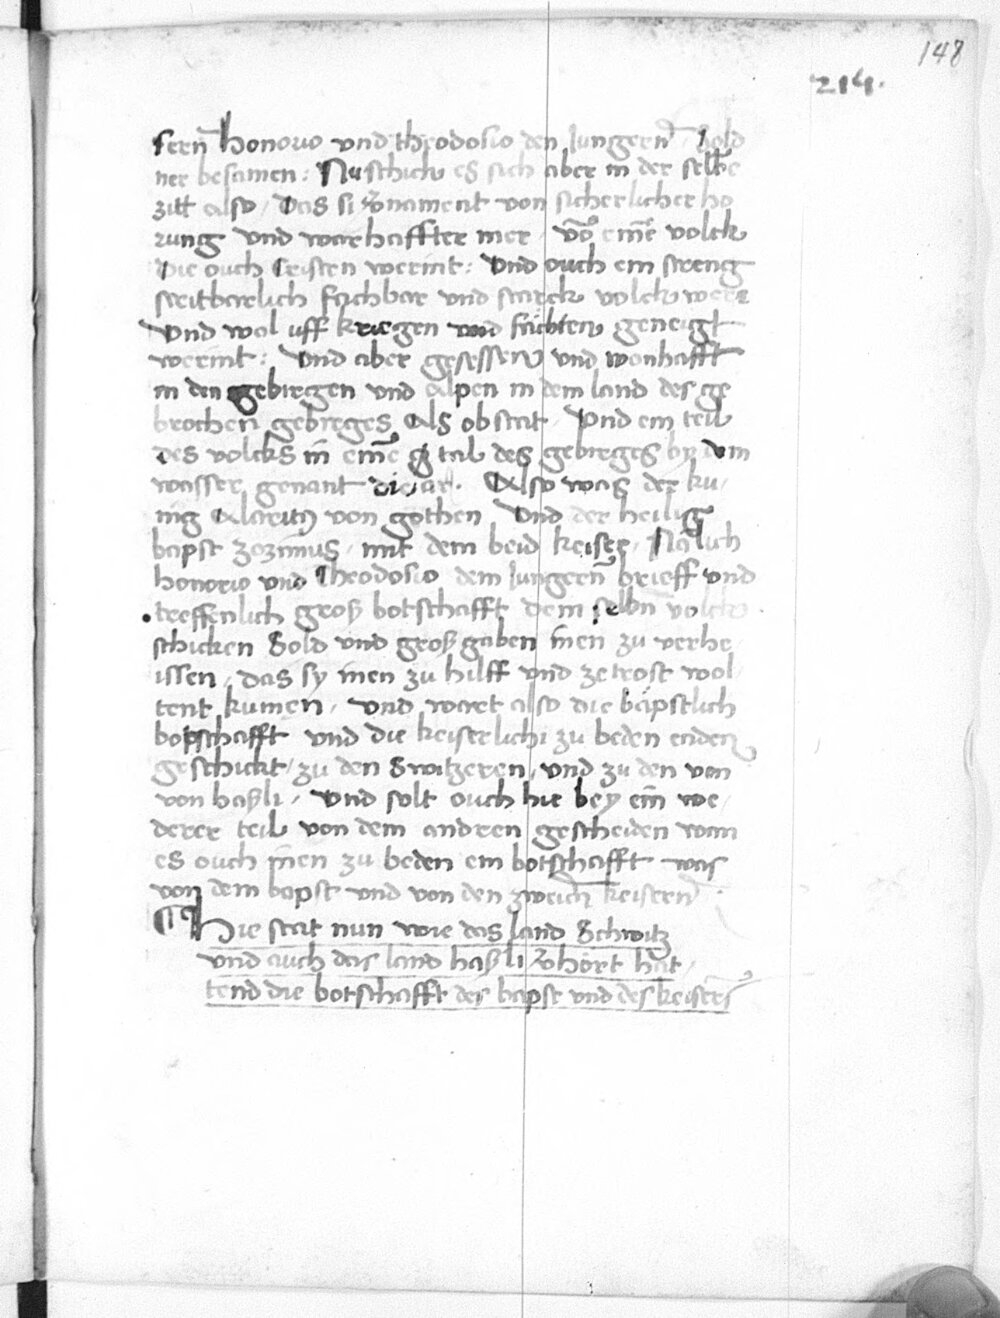 148
214.
sern̄ honorio vnd theodosio den Jungern̄ / sold
ner besamen : Nu schickt es sich aber in der selbē
zitt also / Das si v̓nament von sicherlicher ho
rung vnd warhaffter mer / vō einē volck
Die ouch Cristen werint : Vnd ouch ein streng
streitbarlich fechbar vnd starck volck were
Vnd wol uff kriegen vnd fächten geneigt
werint : Vnd aber gesessen vnd wonhafft
in den gebiregen vnd alpen in dem land des ge
brochen gebirges Als obstat / Vnd ein teil
des volcks in einē tal des gebirges by dem
wasser genant Also was der ku /
nig Alaricus von gothen Vnd der heilig
bapst zozimus / mit dem beid keiser / Nālich
honorio vnd Theodosio dem Jungern̄ brieff vnd
treffenlich groß botschafft dem selbn̄ volck
schicken Sold vnd groß gaben inen zu verhe
issen / das sy inen zu hilff vnd ze trost wol
tent kumen / vnd wart also die bäpstlich
bopschafft vnd die keiserlichi zu beden enden
geschickt / zu den Switzeren / vnd zu den von
von haßli / Vnd solt ouch hie bey ein we /
derer teil von dem andren gescheiden wan
es ouch inen zu beden ein botschafft was
von dem bapst vnd von den zweien keisern̄
¶ Hie stat nun wie das land Schwitz
vnd auch das land haßli v̓hört hat /
tend die botschafft des bapst vnd des keisers